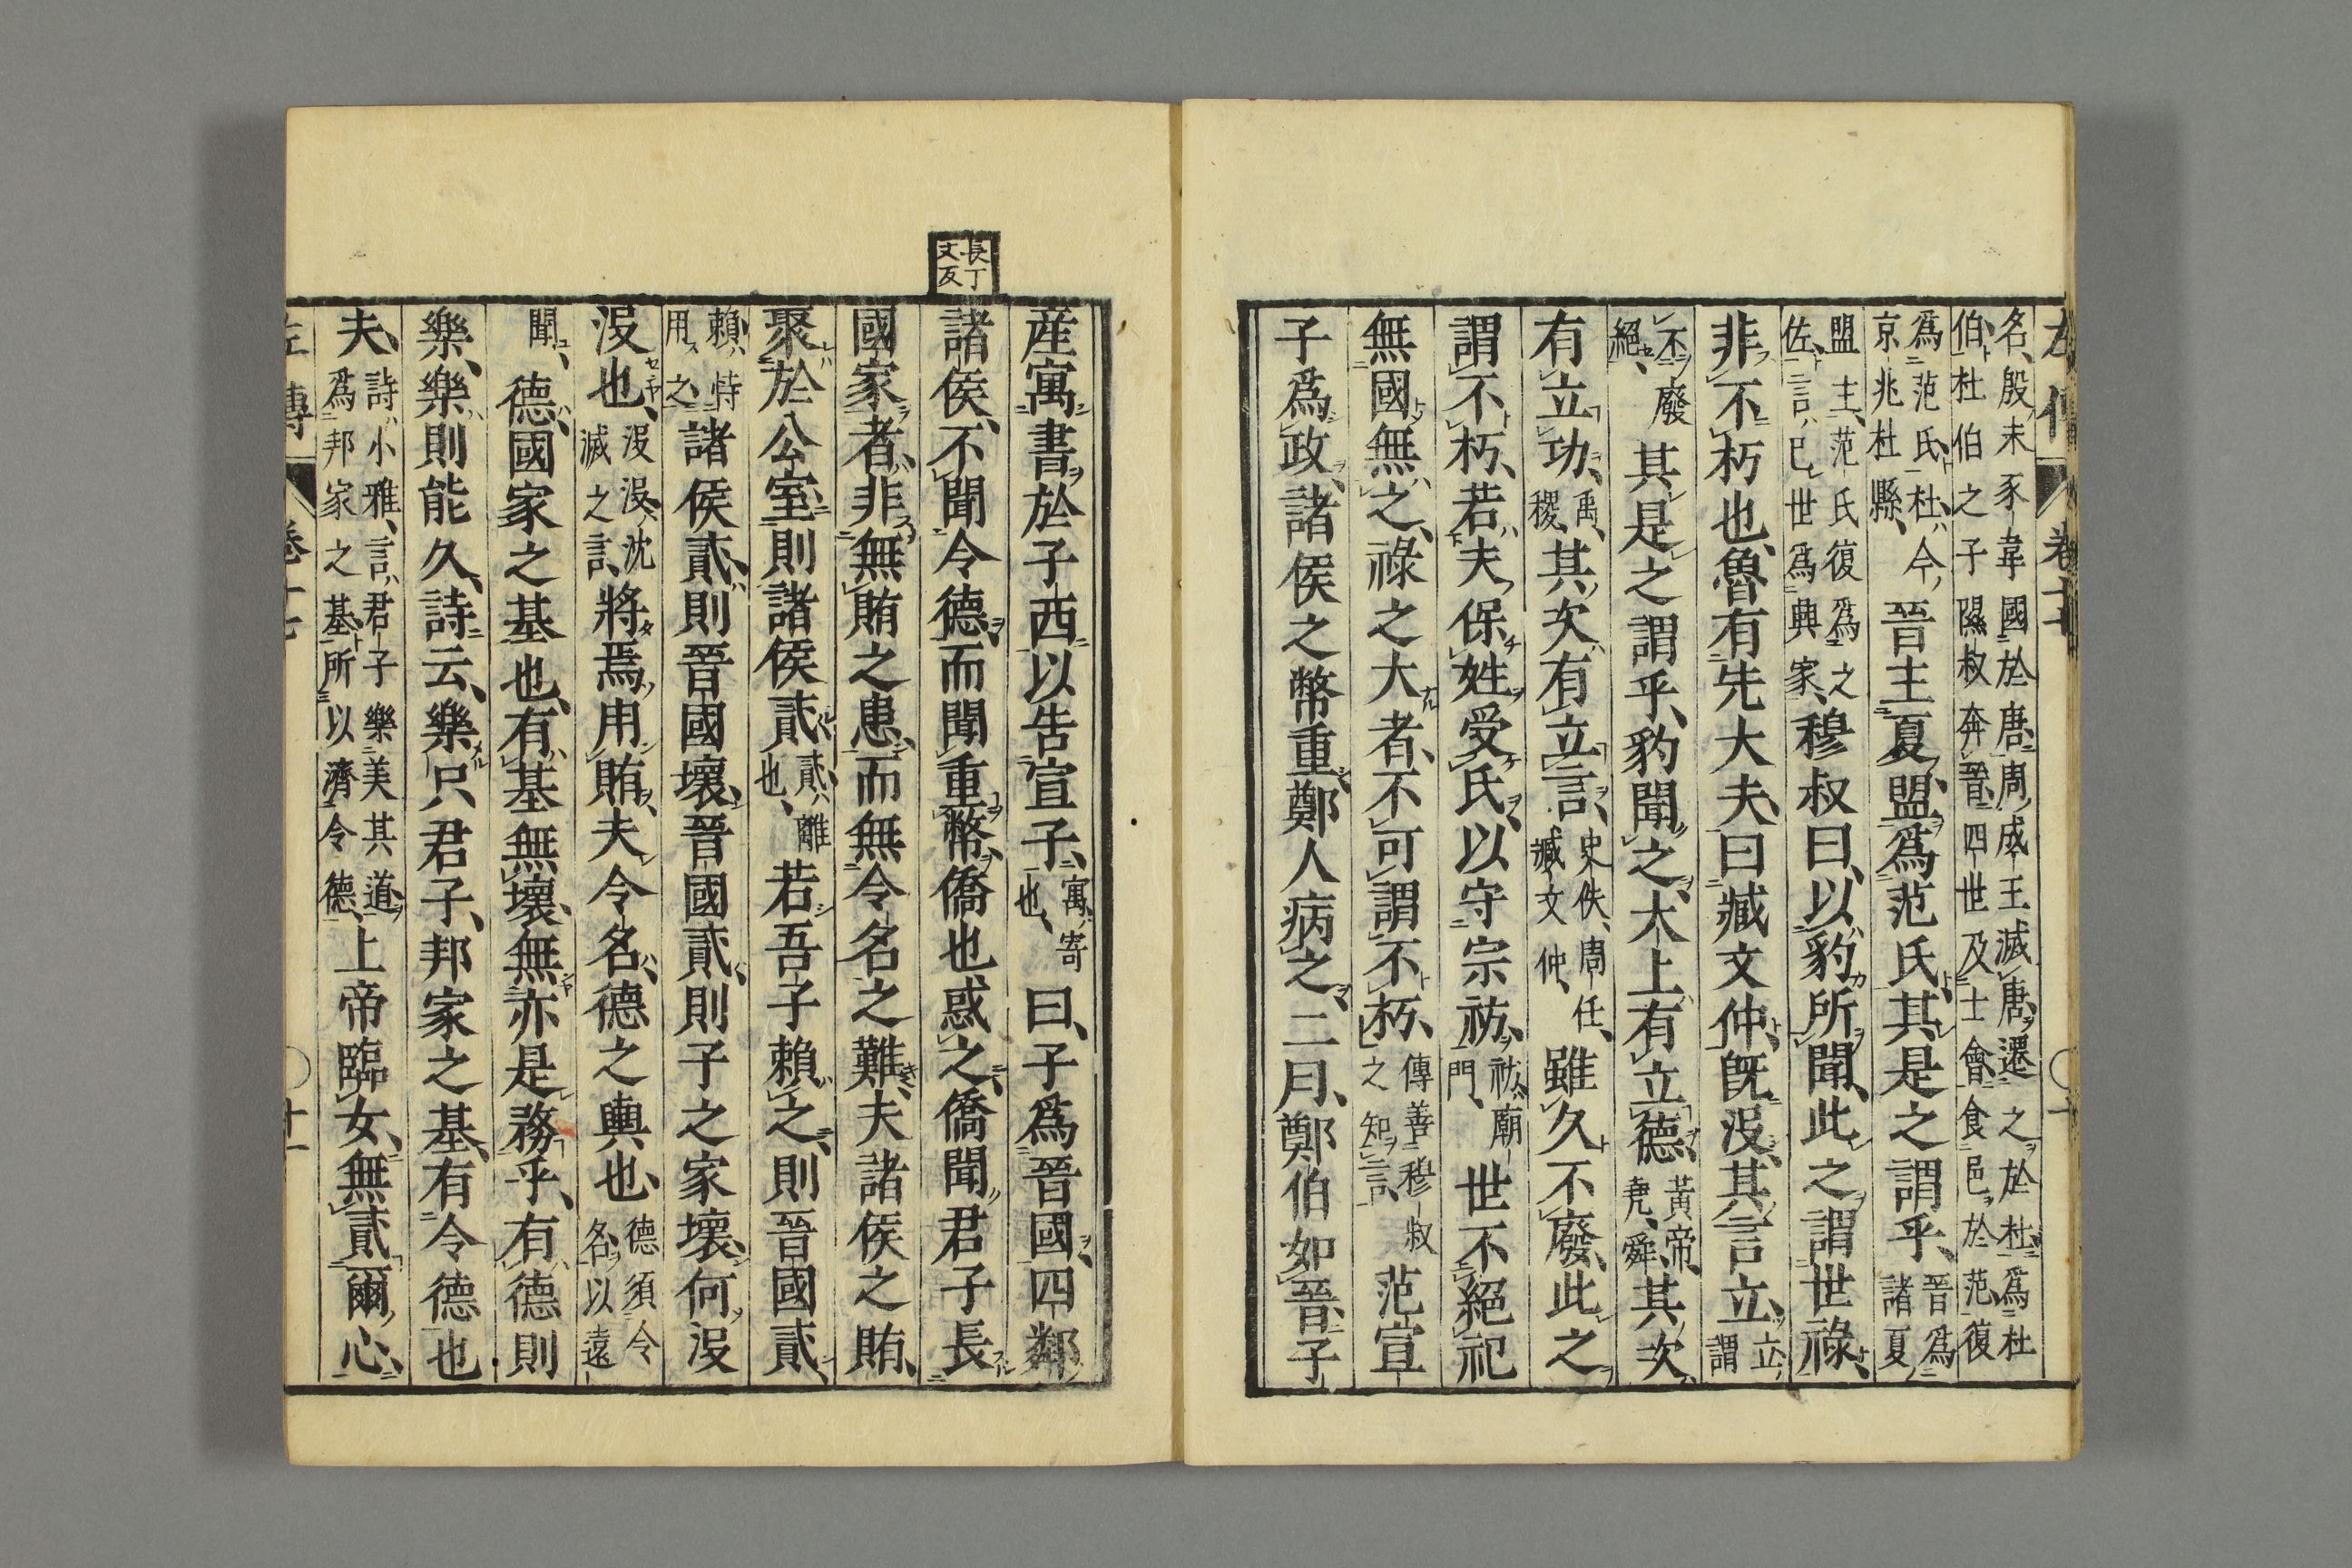 名殷末豕韋國於唐周成王滅唐遷之於杜爲杜
伯杜伯之子隰叔奔晉四世及士會食邑於范復
爲范氏杜今
京兆杜縣
晉主夏盟爲范氏其是之謂乎
晉爲
諸夏
盟主范氏復爲之
佐言已世爲興家
穆叔曰以豹所聞此之謂世祿
非不朽也魯有先大夫曰臧文仲旣沒其言立
立
謂
不廢
絕
其是之謂乎豹聞之大上有立德
黃帝
堯舜
其次
有立功
禹
稷
其次有立言
史佚周任
臧文仲
雖久不廢此之
謂不朽若夫保姓受氏以守宗祊
祊廟
門
世不絕祀
無國無之祿之大者不可謂不朽
傳善穆叔
之知言
范宣
子爲政諸侯之幣重鄭人病之二月鄭伯如晉子
長丁
丈反
產寓書於子西以告宣子
寓寄
也
曰子爲晉國四鄰
諸侯不聞令德而聞重幣僑也惑之僑聞君子長
國家者非無賄之患而無令名之難夫諸侯之賄
聚於公室則諸侯貳
貳離
也
若吾子賴之則晉國貳
賴恃
用之
諸侯貳則晉國壞晉國貳則子之家壞何沒
沒也
沒沒沈
滅之言
將焉用賄夫令名德之輿也
德須令
名以遠
聞
德國家之基也有基無壞無亦是務乎有德則
樂樂則能久詩云樂只君子邦家之基有令德也
夫
詩小雅言君子樂美其道
爲邦家之基所以濟令德
上帝臨女無貳爾心
左傳 卷十七 十一